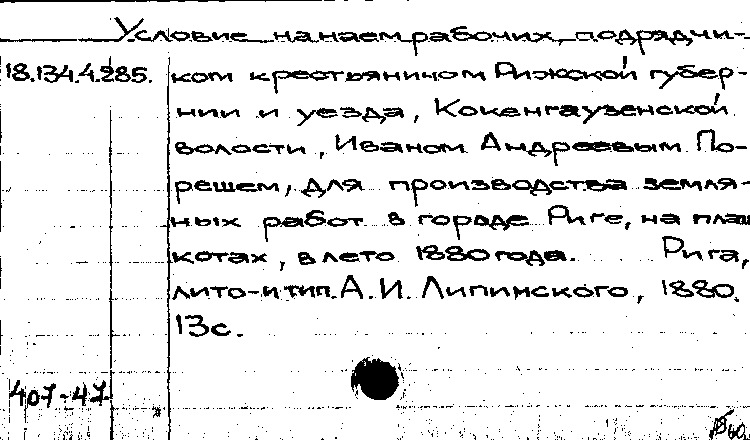 Условие на наем рабочих, подрядчи-
18.134.4.285. ком крестьянином Рижской губер-
нии и уезда, Кокенгаузенской
волости, Иваном Андреевым По-
решем, для производства земля-
ных работ в городе Риге, на плаш
котах, в лето 1880 года. Рига,
лито- и тип. А. И. Липинского, 1880.
13с.
407-47